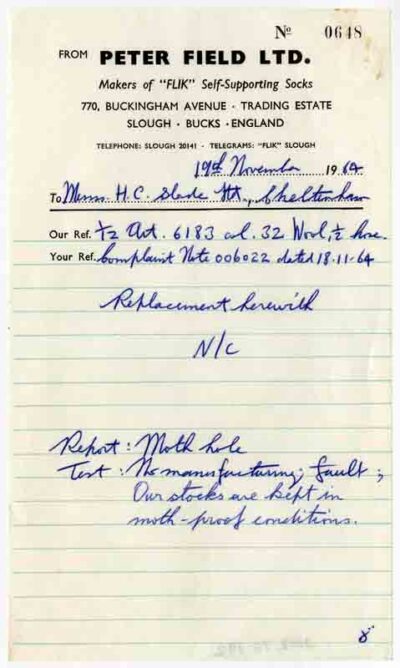 Nº 0648
FROM PETER FIELD LTD.
Makers of "FLIK" Self-Supporting Socks
770, BUCKINGHAM AVENUE · TRADING ESTATE
SLOUGH · BUCKS · ENGLAND
TELEPHONE: SLOUGH 20141 · TELEGRAMS: "FLIK" SLOUGH
19th November 1964
To Messrs. H.C. Slade Ltd., Cheltenham
Our Ref. ½ Art. 6183 col. 32 Wool, ½ hose.
Your Ref. Complaint Note 006022 dated 18-11-64
Replacement herewith
N/C
Report : Moth hole
Test : No manufacturing fault ;
Our stocks are kept in
moth-proof conditions.
8